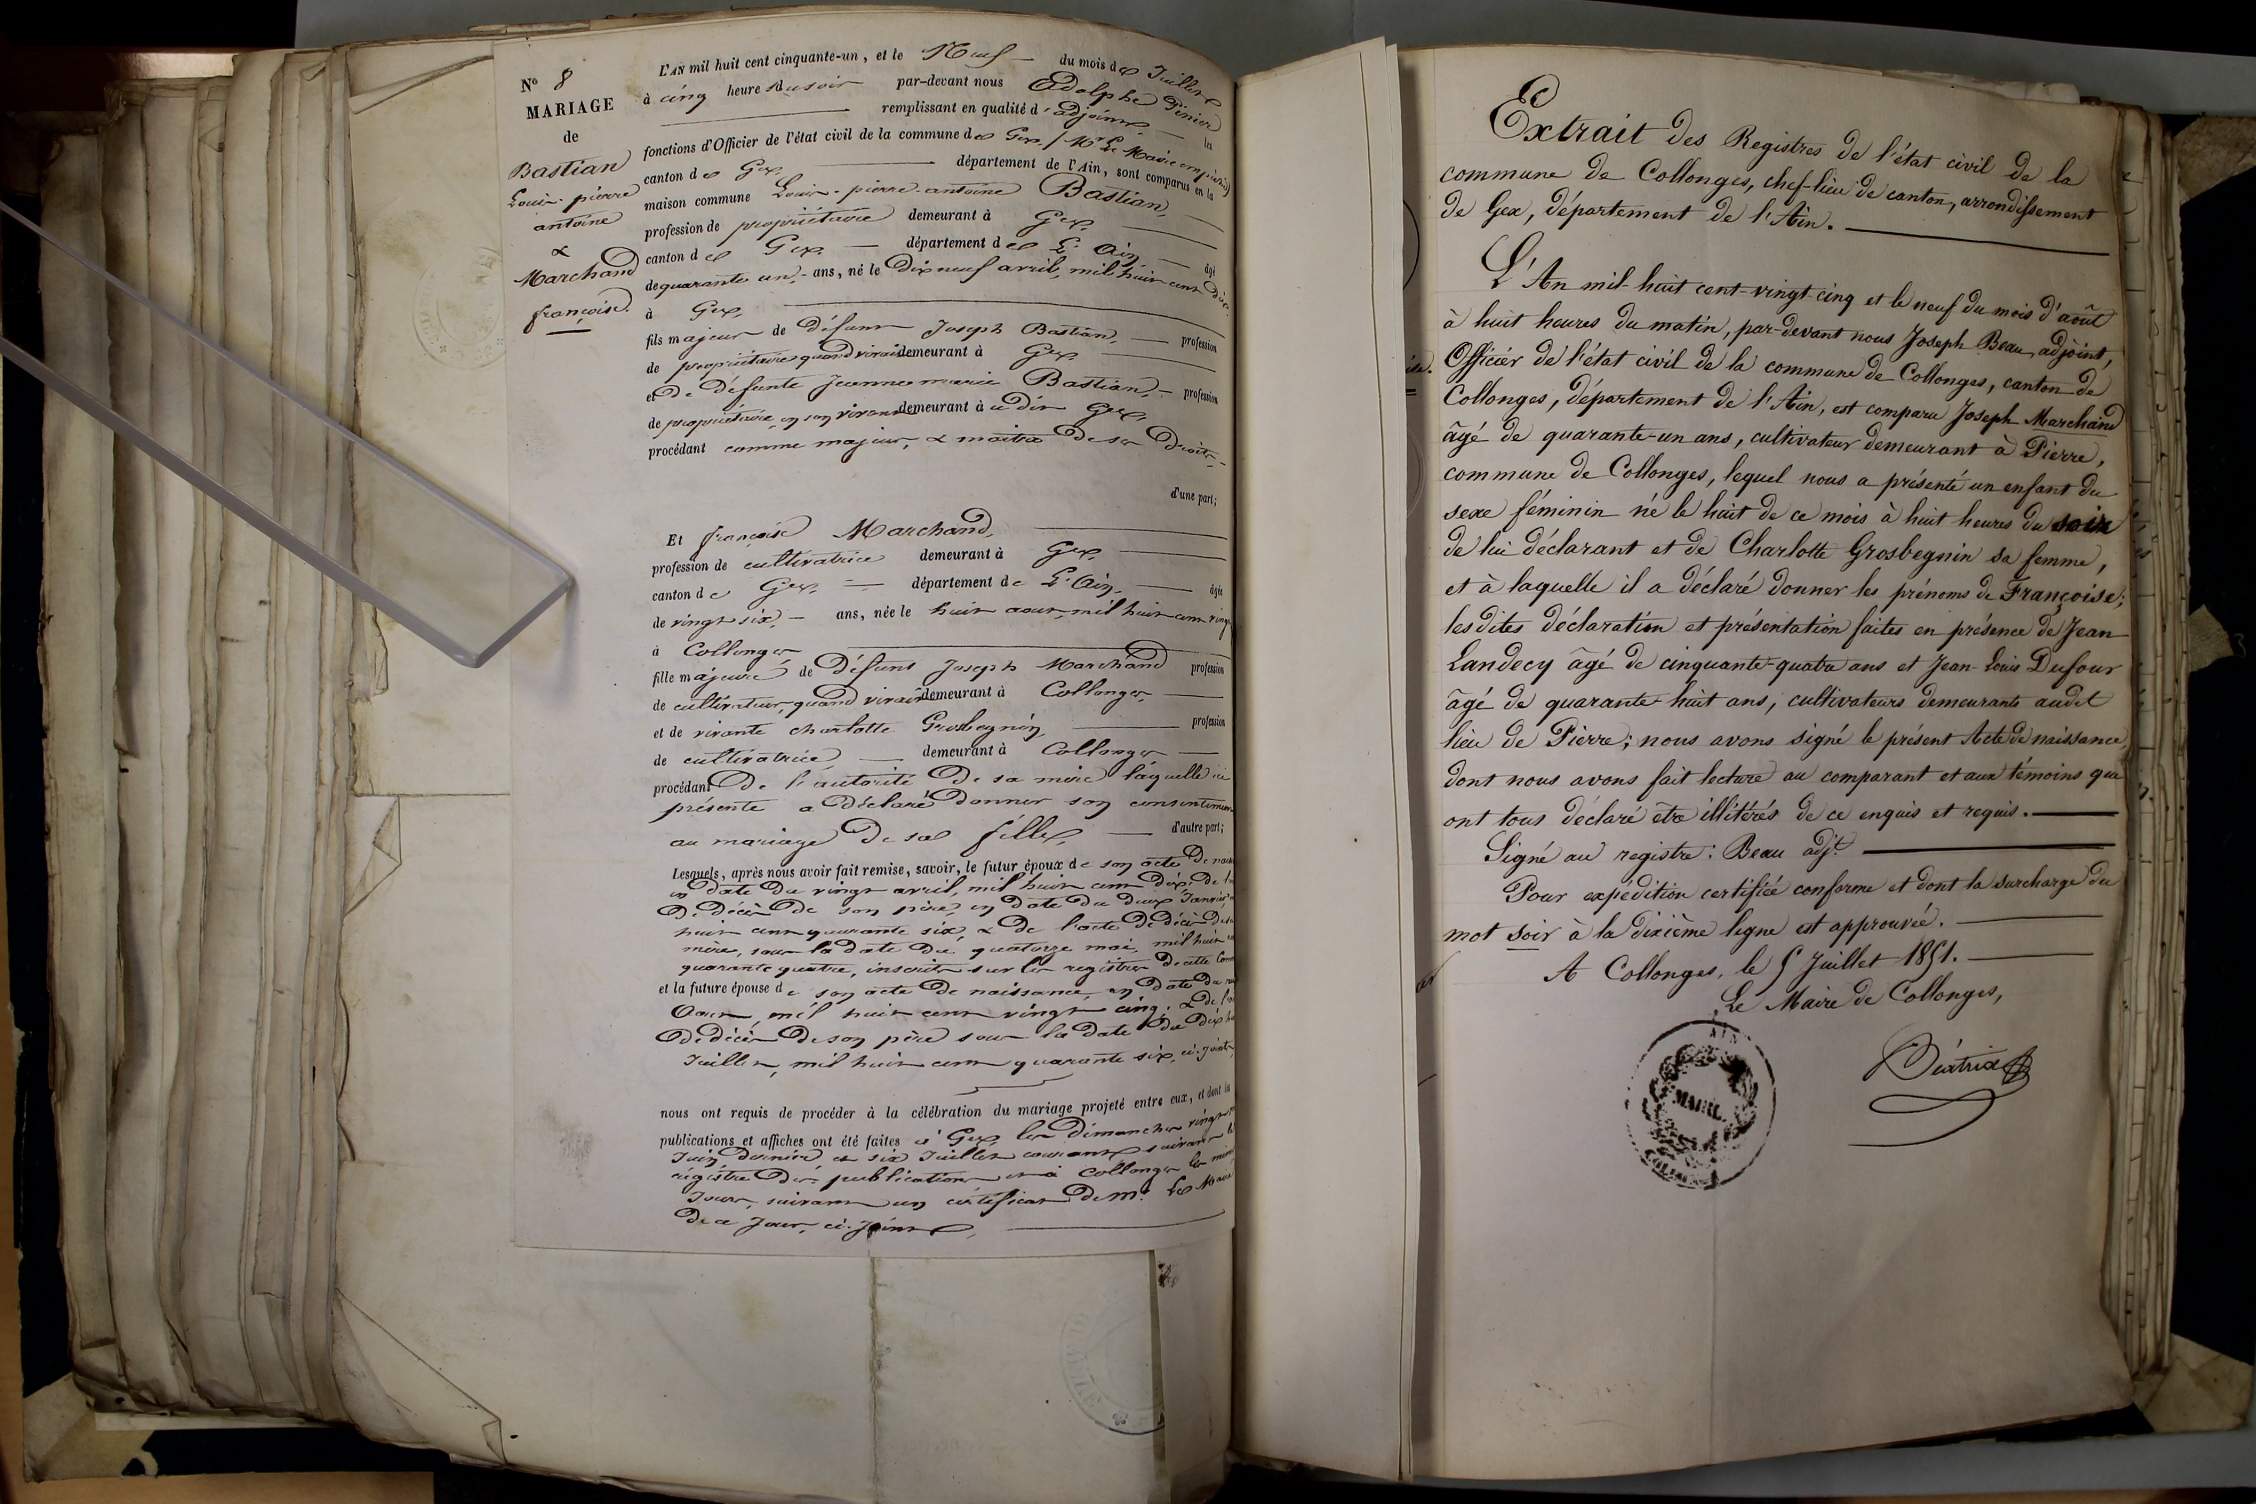 N° 8
MARIAGE
de
Bastian
Louis-pierre
antoine
&
Marchand
françoise.
L'AN mil huit cent cinquante-un, et le Neuf du mois de Juillet
à cinq heure du soir par-devant nous Adolphe
remplissant en qualité d'adjoint les
fonctions d'Officier de l'état civil de la commune de Gex, / Mr Le Maire empêché /
canton de Gex, département de l'Ain, sont comparus en la
maison commune Louis-pierre-antoine Bastian,
profession de propriétaire demeurant à Gex,
canton de Gex, département de L'Ain, âgé
de quarante un, ans, né le Dix neuf avril, mil huit cent dix
à Gex,
fils majeur de Défunt Joseph Bastian, profession
de propriétaire quand vivait demeurant à Gex
et de Défunte Jeanne marie Bastian, profession
de propriétaire, en son vivant demeurant à dit Gex,
procédant comme majeur, & maitre de ses Droits,
d'une part;
Et françoise Marchand,
profession de cultivatrice demeurant à Gex,
canton de Gex, département de L'Ain, âgée
de vingt six, ans, née le huit aout, mil huit cent vingt
à Collonges
fille majeure de Défunt Joseph Marchand profession
de cultivateur, quand vivait demeurant à Collonges,
et de vivante charlotte Grosbegnin, profession
de cultivatrice demeurant à Collonges
procédant De l'autorité De sa mère laquelle ici
présente a Déclaré Donner son consentement
au mariage De sa fille, d'autre part;
Lesquels, après nous avoir fait remise, savoir, le futur époux de son acte De
en Date du vingt avril, mil huit cent Dix, De
De décès De son père, en Date du deux Janvier
huit cent quarante six, & De l'acte De décès De
mère, sous la Date du quatorze mai, mil huit
quarante quatre, inscrits sur les registres De cette
et la future épouse de son acte De naissance, en Date du
Aout, mil huit cent vingt cinq, & De
De décès De son père sous la Date du Dix
Juillet, mil huit cent quarante six, ci-joints,
nous ont requis de procéder à la célébration du mariage projeté entre eux, et dont les
publications et affiches ont été faites à Gex, les Dimanches vingt
Juin Dernier et six Juillet courant suivant le
régistre Des publications et à Collonges les mêmes
Jours, suivant un certificat De Mr Le Maire
De ce Jour, ci-Joint,
Extrait des Registres de l'état civil de la
commune de Collonges, chef-lieu de canton, arrondissement
de Gex, département de l'Ain.
L'An mil-huit cent-vingt-cinq et le neuf du mois d'août
à huit heures du matin, par-devant nous Joseph Beau, adjoint,
Officier de l'état civil de la commune de Collonges, canton de
Collonges, département de l'Ain, est comparu Joseph Marchand
âgé de quarante-un ans, cultivateur demeurant à Pierre,
commune de Collonges, lequel nous a présenté un enfant du
sexe féminin né le huit de ce mois à huit heures du soir
de lui déclarant et de Charlotte Grosbegnin sa femme,
et à laquelle il a déclaré donner les prénoms de Françoise;
les dites déclaration et présentation faites en présence de Jean
Landecy âgé de cinquante-quatre ans et Jean-Louis Dufour
âgé de quarante-huit ans, cultivateurs demeurants audit
lieu de Pierre; nous avons signé le présent Acte de naissance,
dont nous avons fait lecture au comparant et aux témoins qui
ont tous déclaré être illitérés de ce enquis et requis.
Signé au registre: Beau adjt.
Pour expédition certifiée conforme et dont la surcharge du
mot soir à la dixième ligne est approuvée.
A Collonges, le 5 Juillet 1851.
Le Maire de Collonges,
Béatrix
AIN
MAIRIE